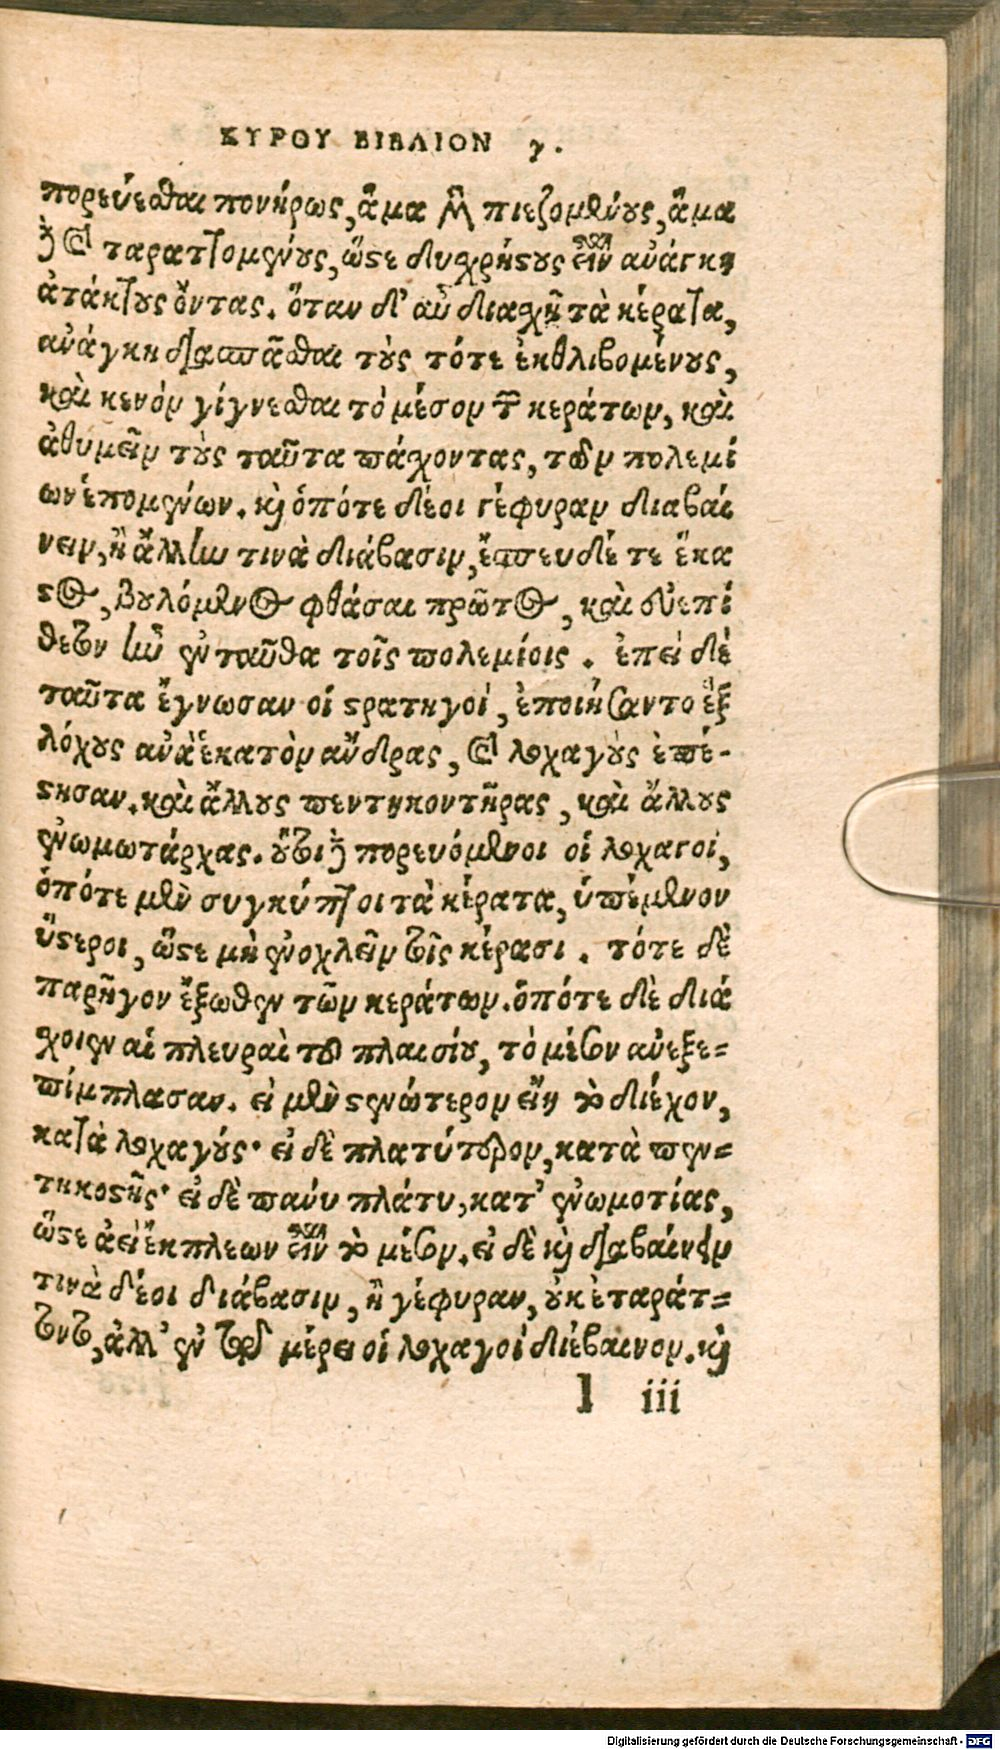 ΚΥΡΟΥ ΒΙΒΛΙΟΝ γ.
πορεύεσθαι πονήρως, ἅμα μὲν πιεζομένους, ἅμα
δὲ καὶ ταραττομένους, ὥστε δυσχρήστους εἶναι ἀνάγκη
ἀτάκτους ὄντας. ὅταν δ' αὖ διασχῇ τὰ κέρατα,
ἀνάγκη διασπᾶσθαι τοὺς τότε ἐκθλιβομένους,
καὶ κενὸν γίγνεσθαι τὸ μέσον τῶν κεράτων, καὶ
ἀθυμεῖν τοὺς ταῦτα πάσχοντας, τῶν πολεμί
ων ἑπομένων. καὶ ὁπότε δέοι γέφυραν διαβαί
νειν, ἢ ἄλλην τινὰ διάβασιν, ἔσπευδέ τε ἕκα
στος, βουλόμενος φθάσαι πρῶτος, καὶ εὐεπί
θετον ἦν ἐνταῦθα τοῖς πολεμίοις. ἐπεὶ δὲ
ταῦτα ἔγνωσαν οἱ στρατηγοί, ἐποιήσαντο ἓξ
λόχους ἀνὰ ἑκατὸν ἄνδρας, καὶ λοχαγοὺς ἐπέ-
στησαν. καὶ ἄλλους πεντηκοντῆρας, καὶ ἄλλους
ἐνωμωτάρχας. οὗτοι δὲ πορευόμενοι οἱ λοχαγοί,
ὁπότε μὲν συγκύπτοι τὰ κέρατα, ὑπέμενον
ὕστεροι, ὥστε μὴ ἐνοχλεῖν τοῖς κέρασι. τότε δὲ
παρῆγον ἔξωθεν τῶν κεράτων. ὁπότε δὲ διά
σχοιεν αἱ πλευραὶ τοῦ πλαισίου, τὸ μέσον ἀνεξε=
πίμπλασαν. εἰ μὲν στενώτερον εἴη τὸ διέχον,
κατὰ λοχαγούς· εἰ δὲ πλατύτερον, κατὰ πεν=
τηκοστῆς· εἰ δὲ πάνυ πλάτυ, κατ' ἐνωμοτίας,
ὥστε ἀεὶ ἔκπλεων εἶναι τὸ μέσον. εἰ δὲ καὶ διαβαίνειν
τινὰ δέοι διάβασιν, ἢ γέφυραν, οὐκ ἐταράτ=
τοντο, ἀλλ' ἐν τῷ μέρει οἱ λοχαγοὶ διέβαινον. καὶ
l iii
Digitalisierung gefördert durch die Deutsche Forschungsgemeinschaft - DFG